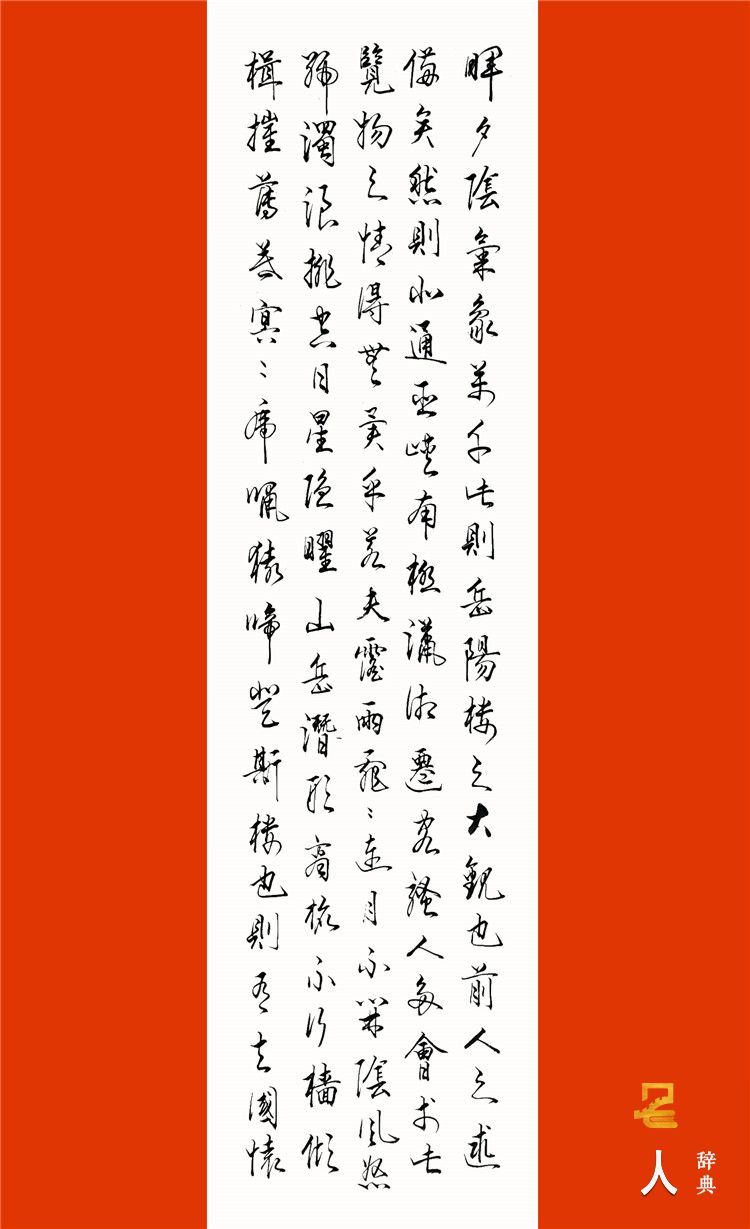 暉夕陰氣象萬千此則岳陽楼之大觀也前人之述
備矣然則北通巫峽南極瀟湘遷客騷人多會於此
覽物之情得無異乎若夫霪雨霏〻連月不開陰風怒
號濁浪排空日星隐曜山岳潛形商旅不行檣傾
楫摧薄暮冥〻虎嘯猿啼登斯楼也則有去國懷
名人
辞典